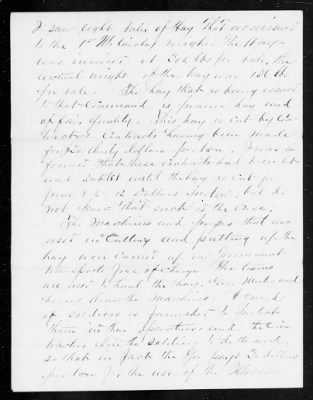 I saw eight bales of Hay that was issued
to the 1st Mo Cavalry weighed The Hay
was invoiced at 302 lbs per bale, the
actual weight of the hay was 130 lb.
per bale. The hay that is being issued
to that Command is prairie hay and
of fair quality. This hay is Cut by Con-
tractors Contracts having been made
for thirty dollars per ton. I was in
formed that these Contracts had been let
and sublet until the hay is Cut for
from 8 to 12 Dollars per ton. but do
not know that such is the case.
The Machines and forks that are
used in Cutting and putting up the
hay were Carried up on Government
Transports free of Charge. Gov teams
are used to haul the hay. Gov Mules and
horses draw the Machines. A guard
of soldiers is furnished to protect
them in their operations and the Con
tractors hire the soldiers to do the work.
so that in fact the Gov pays 30 dollars
per ton for the use of the